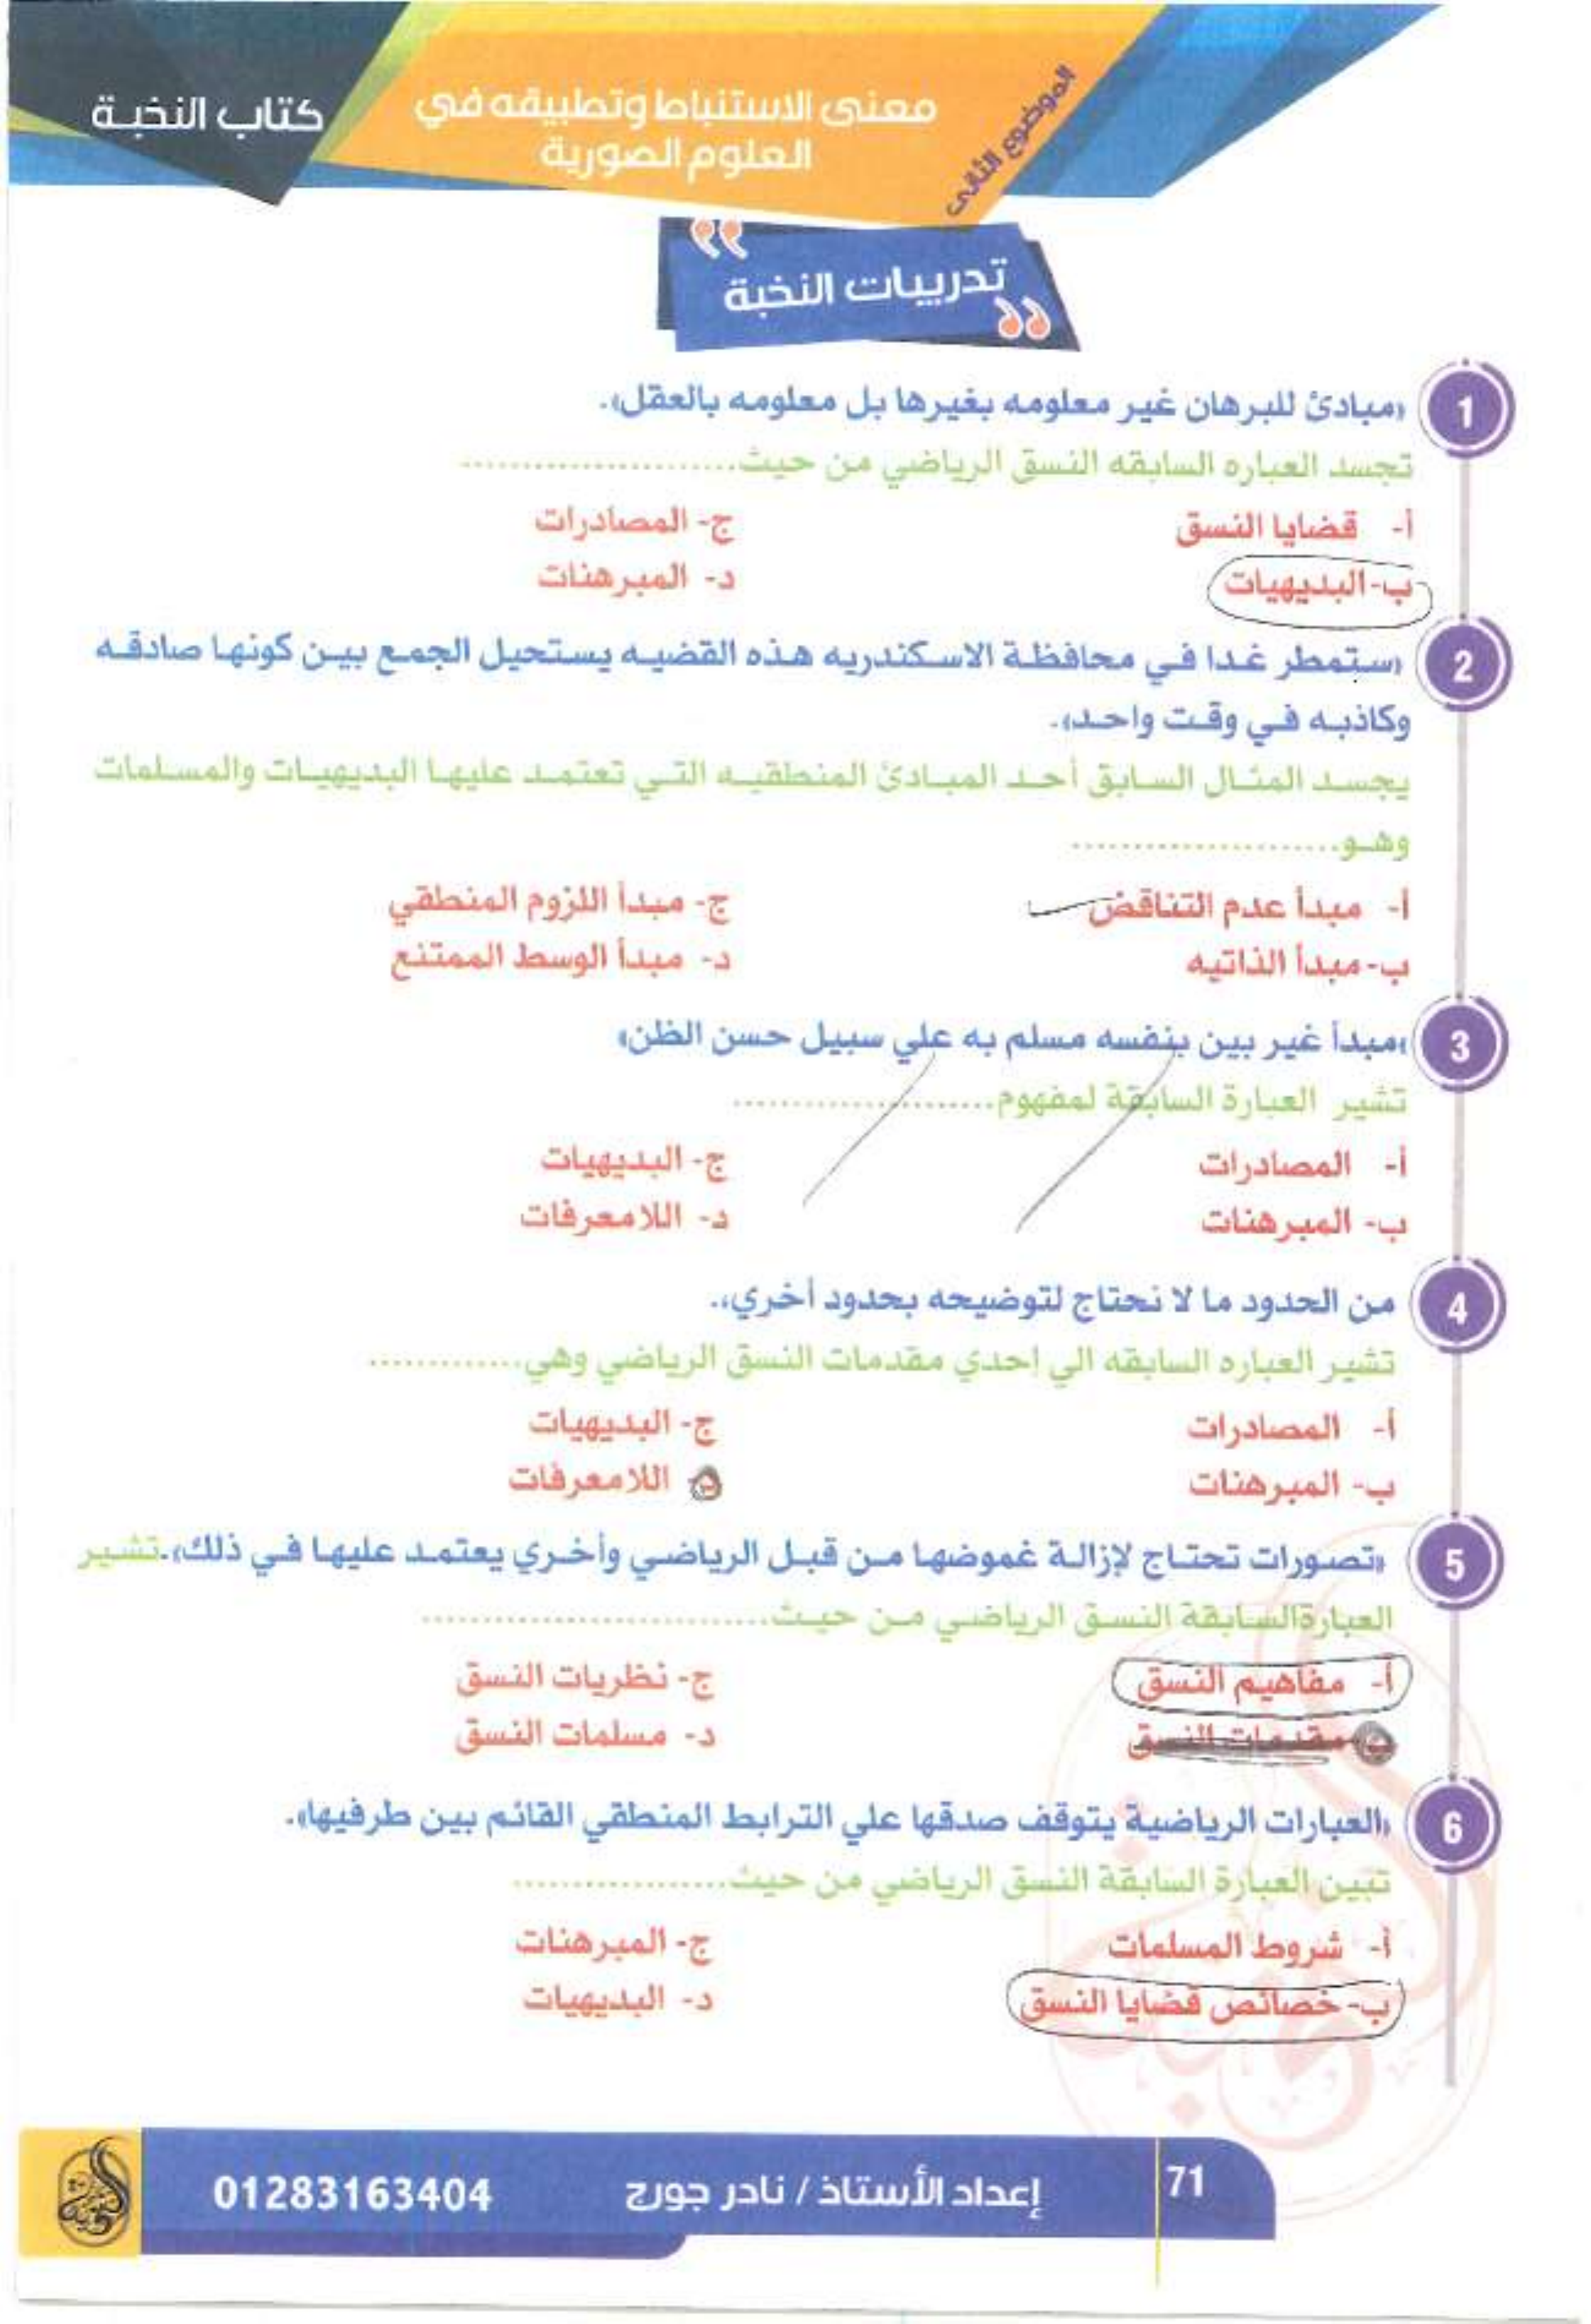 كتاب النخبة
معنى الاستنباط وتطبيقه في
العلوم الصورية
الموضوع الثانى
تدريبات النخبة
1 «مبادئ للبرهان غير معلومه بغيرها بل معلومه بالعقل».
تجسد العباره السابقه النسق الرياضي من حيث......................
أ- قضايا النسق
ج- المصادرات
ب- البديهيات
د- المبرهنات
2 «ستمطر غدا في محافظة الاسكندريه هذه القضيه يستحيل الجمع بين كونها صادقه
وكاذبه في وقت واحد».
يجسد المثال السابق أحد المبادئ المنطقيه التي تعتمد عليها البديهيات والمسلمات
وهو......................
أ- مبدأ عدم التناقض
ج- مبدأ اللزوم المنطقي
ب- مبدأ الذاتيه
د- مبدأ الوسط الممتنع
3 «مبدأ غير بين بنفسه مسلم به علي سبيل حسن الظن»
تشير العبارة السابقة لمفهوم......................
أ- المصادرات
ج- البديهيات
ب- المبرهنات
د- اللامعرفات
4 من الحدود ما لا نحتاج لتوضيحه بحدود أخري،.
تشير العباره السابقه الي إحدي مقدمات النسق الرياضي وهي.............
أ- المصادرات
ج- البديهيات
ب- المبرهنات
د- اللامعرفات
5 «تصورات تحتاج لإزالة غموضها من قبل الرياضي وأخري يعتمد عليها في ذلك».تشير
العبارةالسابقة النسق الرياضي من حيث............................
أ- مفاهيم النسق
ج- نظريات النسق
ب- مقدمات النسق
د- مسلمات النسق
6 «العبارات الرياضية يتوقف صدقها علي الترابط المنطقي القائم بين طرفيها».
تبين العبارة السابقة النسق الرياضي من حيث..................
أ- شروط المسلمات
ج- المبرهنات
ب- خصائص قضايا النسق
د- البديهيات
71
إعداد الأستاذ / نادر جورج
01283163404